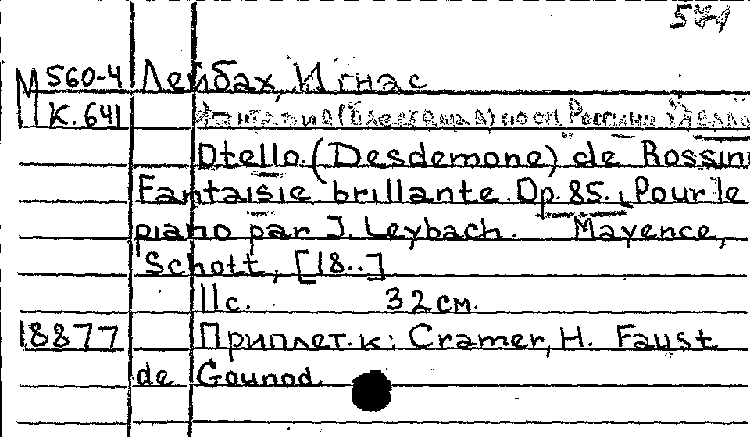 571
М 560-4 Лейбах, Игнас
К. 641 Фантазия (блестящая) по оп. Россини
Otello. (Desdemone) de Rossini
Fantaisie brillante. Op. 85. Pour le
piano par J. Leybach. Mayence,
Schott, [18..]
11с. 32 см.
18877 Приплет. к: Cramer, H. Faust
de Gounod.